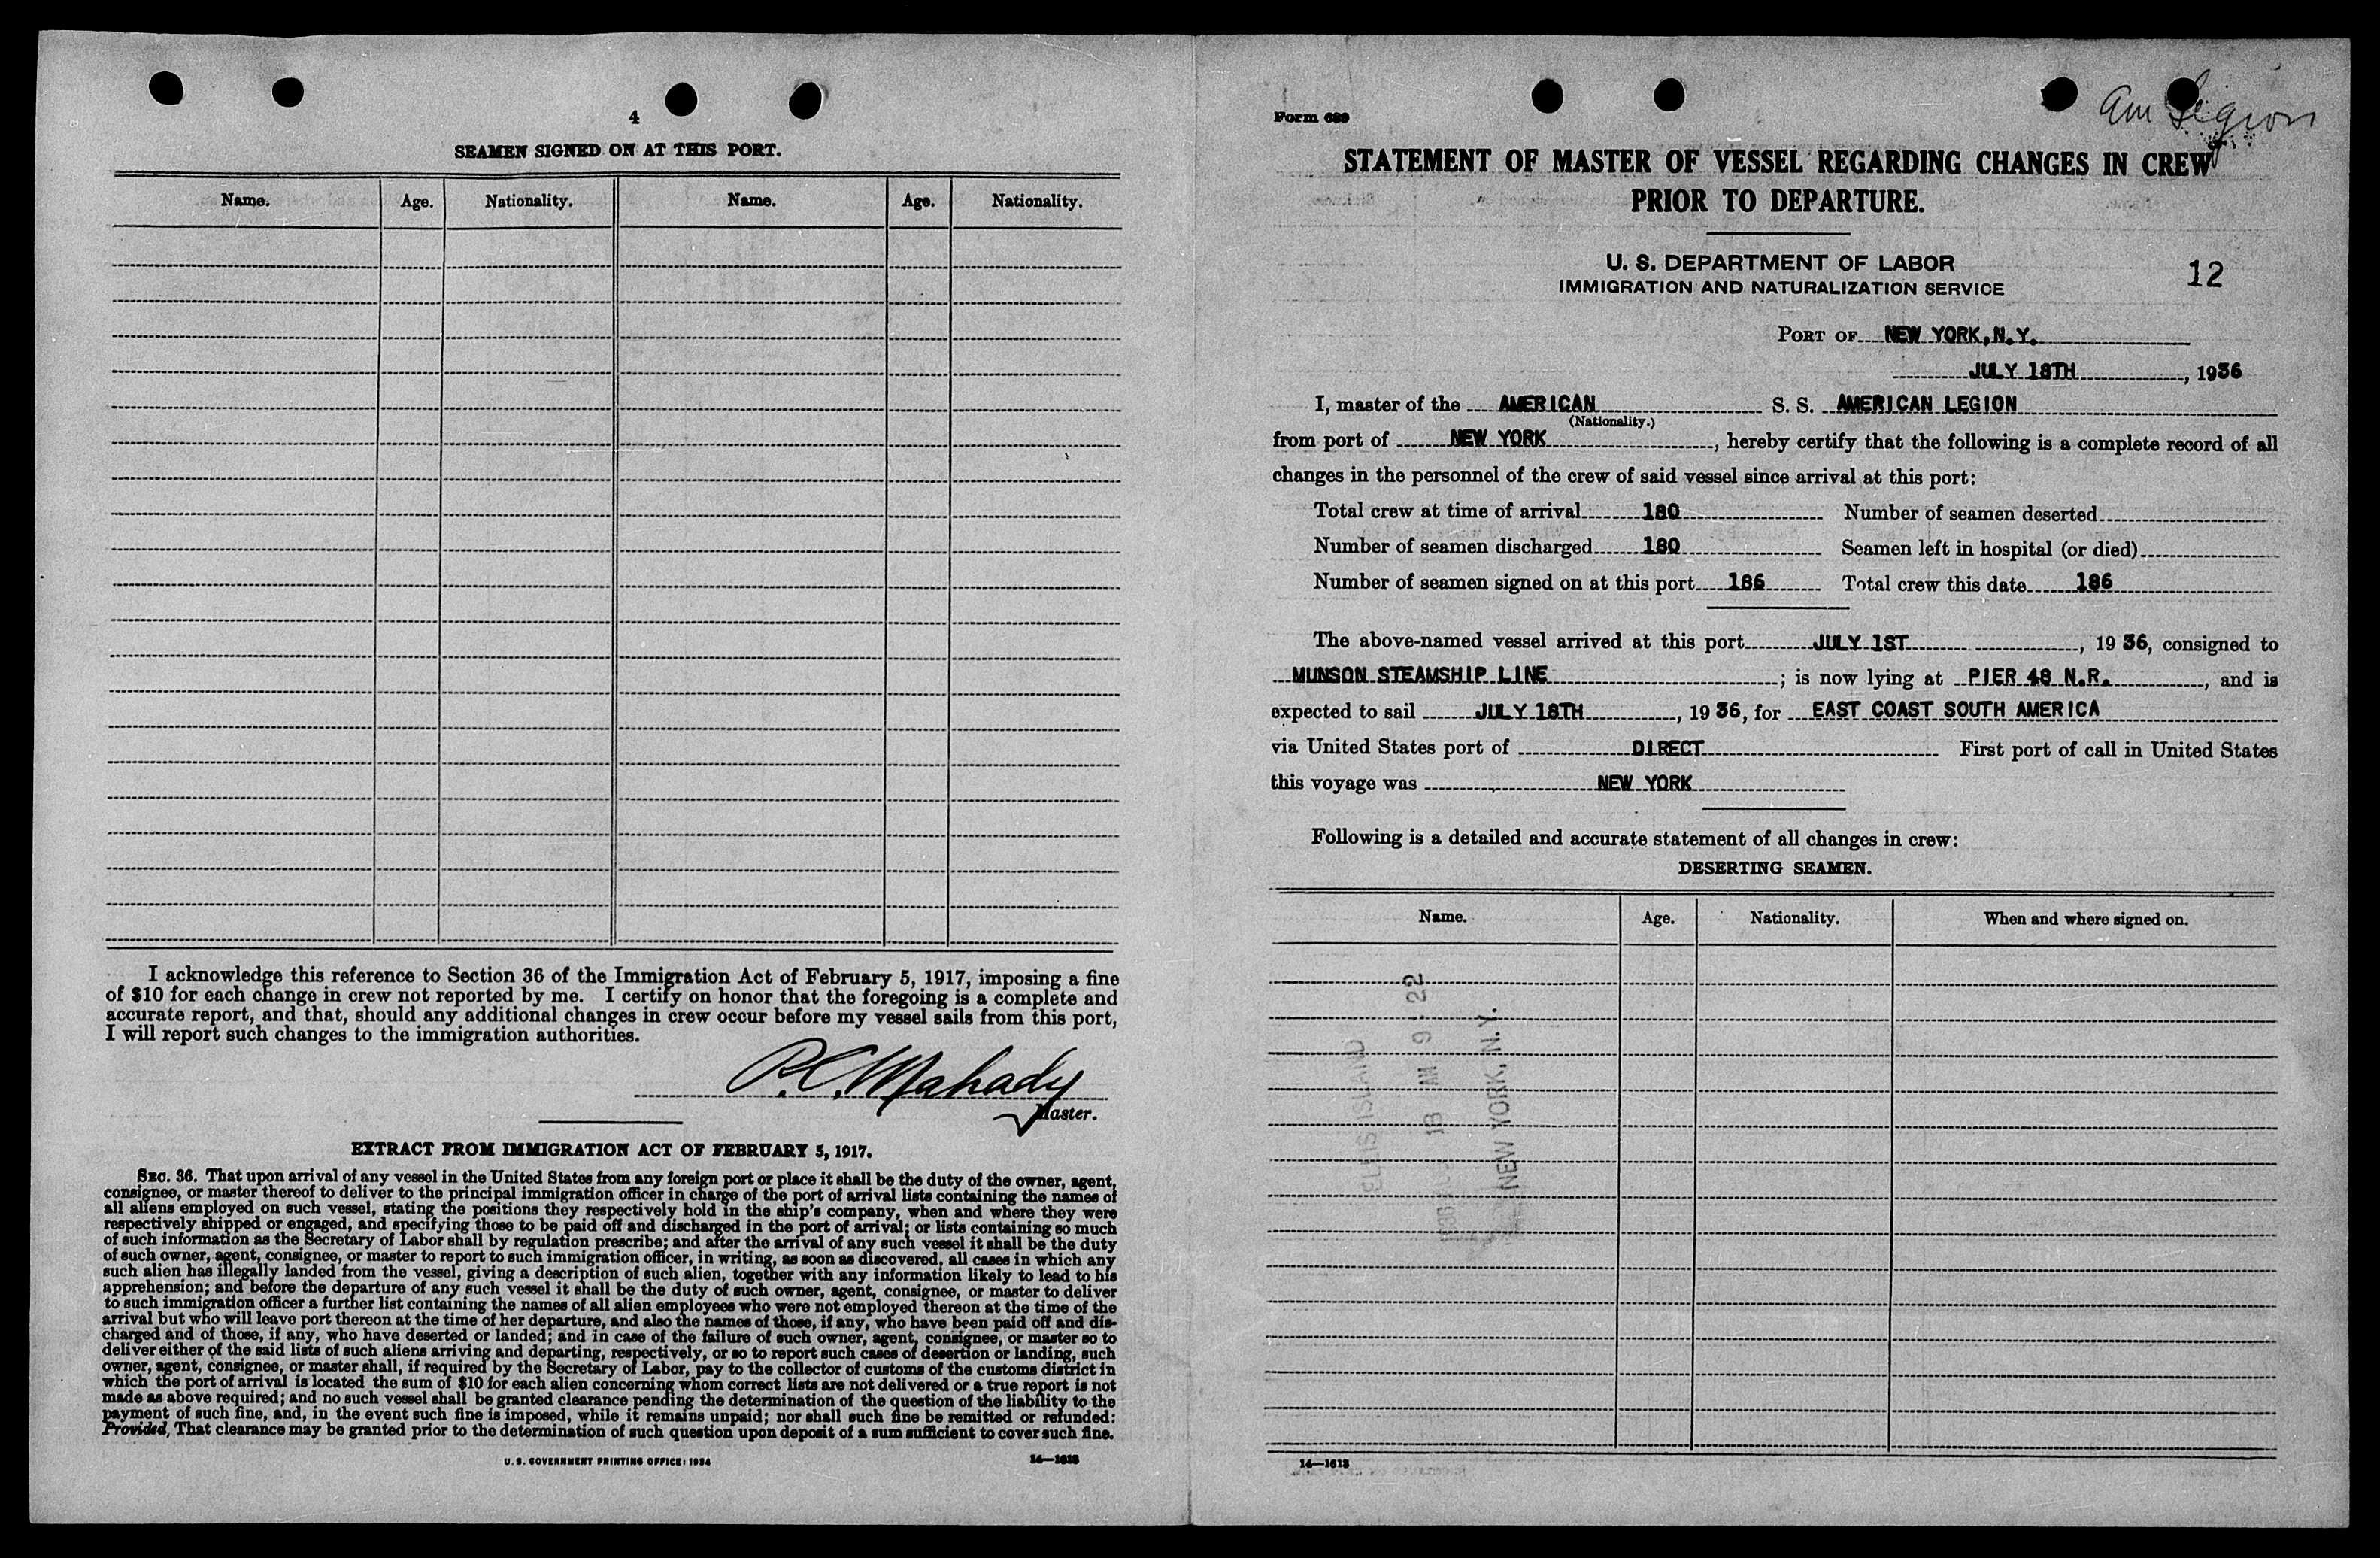 4
SEAMEN SIGNED ON AT THIS PORT.
Name. Age. Nationality. Name. Age. Nationality.
I acknowledge this reference to Section 36 of the Immigration Act of February 5, 1917, imposing a fine
of $10 for each change in crew not reported by me. I certify on honor that the foregoing is a complete and
accurate report, and that, should any additional changes in crew occur before my vessel sails from this port,
I will report such changes to the immigration authorities.
P.C. Mahady
Master.
EXTRACT FROM IMMIGRATION ACT OF FEBRUARY 5, 1917.
SEC. 36. That upon arrival of any vessel in the United States from any foreign port or place it shall be the duty of the owner, agent,
consignee, or master thereof to deliver to the principal immigration officer in charge of the port of arrival lists containing the names of
all aliens employed on such vessel, stating the positions they respectively hold in the ship's company, when and where they were
respectively shipped or engaged, and specifying those to be paid off and discharged in the port of arrival; or lists containing so much
of such information as the Secretary of Labor shall by regulation prescribe; and after the arrival of any such vessel it shall be the duty
of such owner, agent, consignee, or master to report to such immigration officer, in writing, as soon as discovered, all cases in which any
such alien has illegally landed from the vessel, giving a description of such alien, together with any information likely to lead to his
apprehension; and before the departure of any such vessel it shall be the duty of such owner, agent, consignee, or master to deliver
to such immigration officer a further list containing the names of all alien employees who were not employed thereon at the time of the
arrival but who will leave port thereon at the time of her departure, and also the names of those, if any, who have been paid off and dis-
charged and of those, if any, who have deserted or landed; and in case of the failure of such owner, agent, consignee, or master so to
deliver either of the said lists of such aliens arriving and departing, respectively, or so to report such cases of desertion or landing, such
owner, agent, consignee, or master shall, if required by the Secretary of Labor, pay to the collector of customs of the customs district in
which the port of arrival is located the sum of $10 for each alien concerning whom correct lists are not delivered or a true report is not
made as above required; and no such vessel shall be granted clearance pending the determination of the question of the liability to the
payment of such fine, and, in the event such fine is imposed, while it remains unpaid; nor shall such fine be remitted or refunded:
Provided, That clearance may be granted prior to the determination of such question upon deposit of a sum sufficient to cover such fine.
U. S. GOVERNMENT PRINTING OFFICE: 1934 14—1613
Form 689
Am Legion
STATEMENT OF MASTER OF VESSEL REGARDING CHANGES IN CREW
PRIOR TO DEPARTURE.
U. S. DEPARTMENT OF LABOR
IMMIGRATION AND NATURALIZATION SERVICE
12
PORT OF NEW YORK, N.Y.
JULY 18TH, 1936
I, master of the AMERICAN S. S. AMERICAN LEGION
(Nationality.)
from port of NEW YORK, hereby certify that the following is a complete record of all
changes in the personnel of the crew of said vessel since arrival at this port:
Total crew at time of arrival 180 Number of seamen deserted
Number of seamen discharged 180 Seamen left in hospital (or died)
Number of seamen signed on at this port 186 Total crew this date 186
The above-named vessel arrived at this port JULY 1ST, 19 36, consigned to
MUNSON STEAMSHIP LINE; is now lying at PIER 48 N.R., and is
expected to sail JULY 18TH, 19 36, for EAST COAST SOUTH AMERICA
via United States port of DIRECT First port of call in United States
this voyage was NEW YORK
Following is a detailed and accurate statement of all changes in crew:
DESERTING SEAMEN.
Name. Age. Nationality. When and where signed on.
ELLIS ISLAND
18 AM 9:22
NEW YORK, N.Y.
14—1613